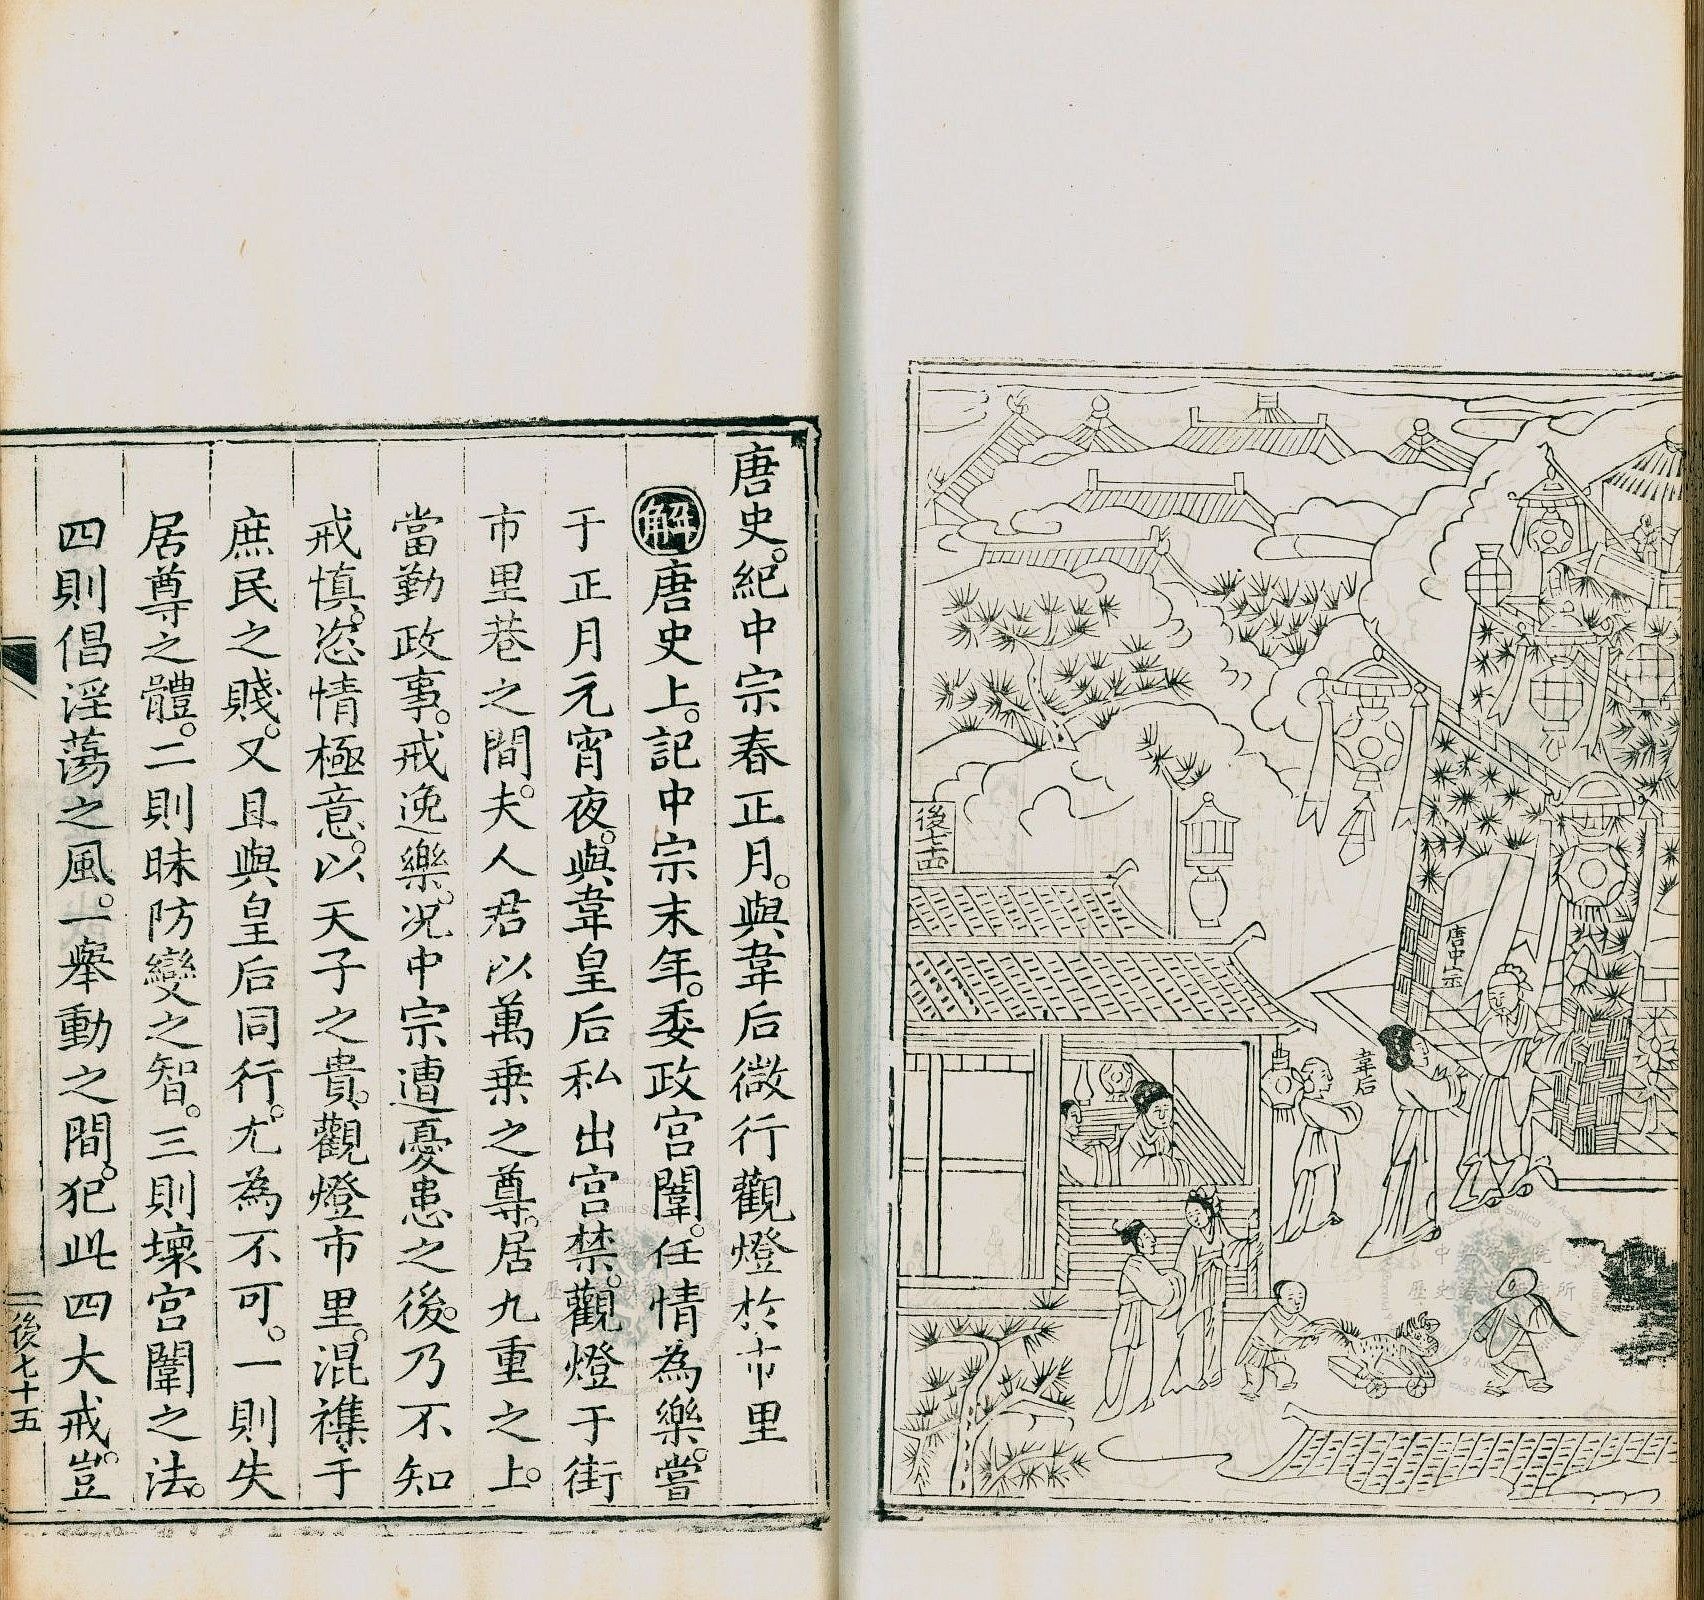 唐中宗
韋后
後七十四
唐史。紀中宗春正月。與韋后微行觀燈於市里
解唐史上。記中宗末年。委政宮闈。任情為樂。嘗
于正月元宵夜。與韋皇后私出宮禁。觀燈于街
市里巷之間。夫人君以萬乗之尊。居九重之上。
當勤政事。戒逸樂。况中宗遭憂患之後。乃不知
戒慎。恣情極意。以天子之貴。觀燈市里。混襍于
庶民之賤。又且與皇后同行。尤為不可。一則失
居尊之體。二則昧防變之智。三則壞宮闈之法。
四則倡淫蕩之風。一舉動之間。犯此四大戒。豈
後七十五